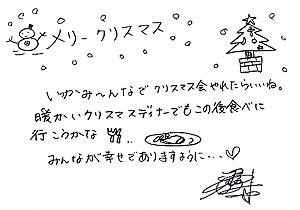 メリークリスマス
いつかみ〜んなでクリスマス会やれたらいいね。
暖かいクリスマスディナーでもこの後食べに
行こうかな
みんなが幸せでありますように…♡